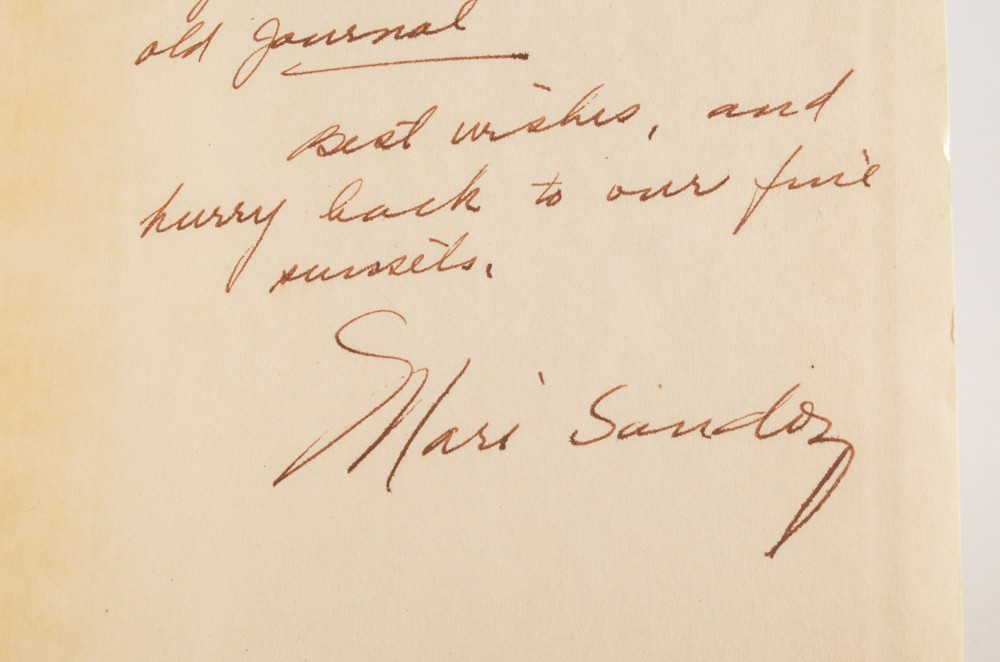 old Journal
Best wishes, and
hurry back to our fine
sunsets.
Mari Sandoz